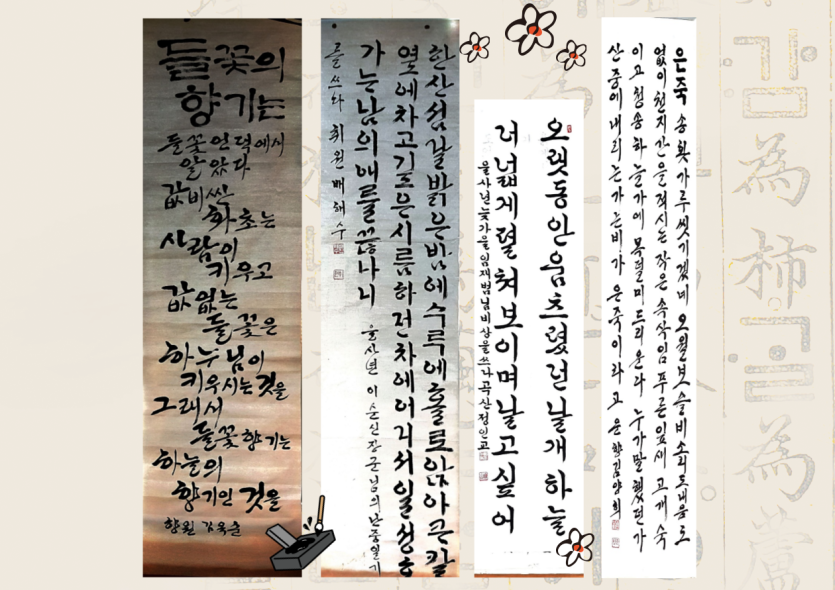 들꽃의
향기는
들꽃 언덕에서
알았다
값비싼
화초는
사람이
키우고
값없는
들꽃은
하느님이
키우시는 것을
그래서
들꽃 향기는
하늘의
향기인 것을
향원 김옥순
한산섬 달 밝은 밤에 수루에 홀로 앉아 큰 칼
옆에 차고 깊은 시름 하던 차에 어디서 일성호
가는 남의 애를 끊나니 을사년 이순신장군님의 난중일기
를 쓰다 취원 배해수
오랫동안 움츠렸던 날개 하늘
더 넓게 펼쳐 보이며 날고 싶어
을사년 늦가을 임재범님 비상을 쓰다 곡산 정인교
은죽 송홧가루 씻기겠네 오월 보슬비 소리도 내음도
없이 천지간을 적시는 작은 속삭임 푸른 잎새 고개 숙
이고 청송 하늘가에 목덜미 드리운다 누가 말했던가
산중에 내리는 가는 비가 은죽이라고 운향 김양희